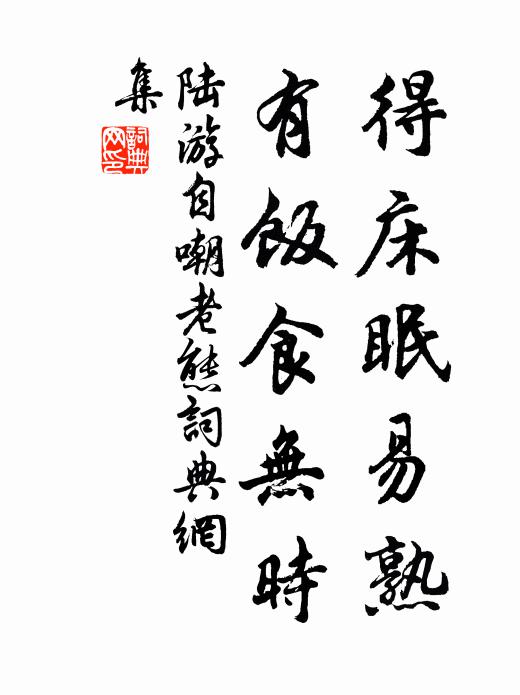 得床眠易熟
有飯食無時
陸游自嘲老態詞典網
集
詞典
网印